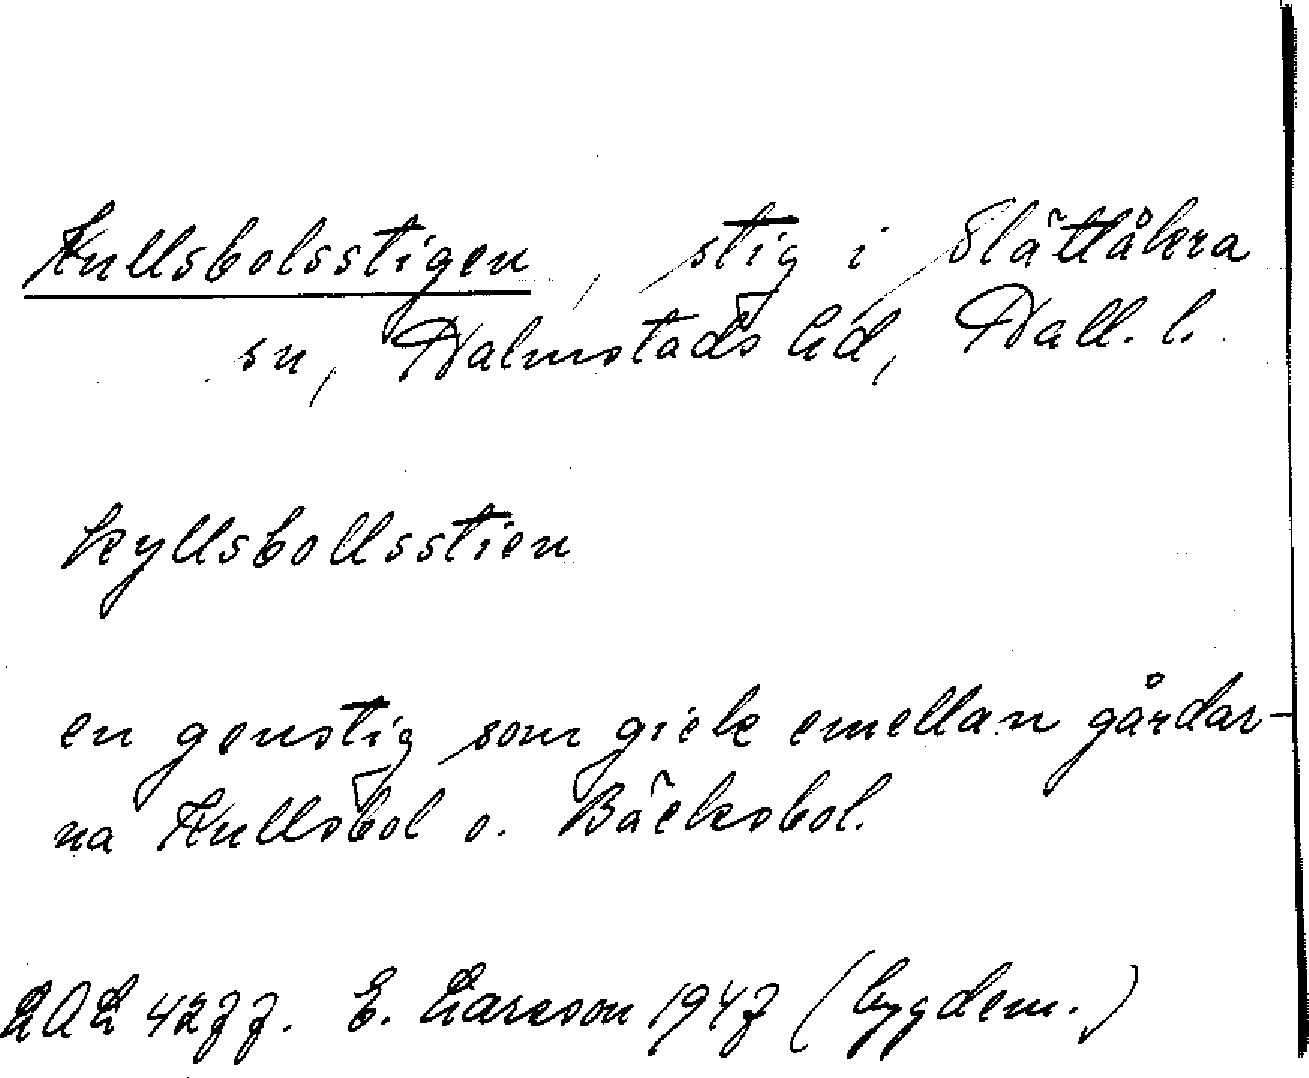 Kullsbolsstigen, stig i Slättåkra
sn, Halmstads hd, Hall. l.
kyllsbollsstien
en genstig som gick emellan gårdar-
na Kullsbol o. Bäcksbol.
LAL 4277. E. Larsson 1947 (bygdem.)